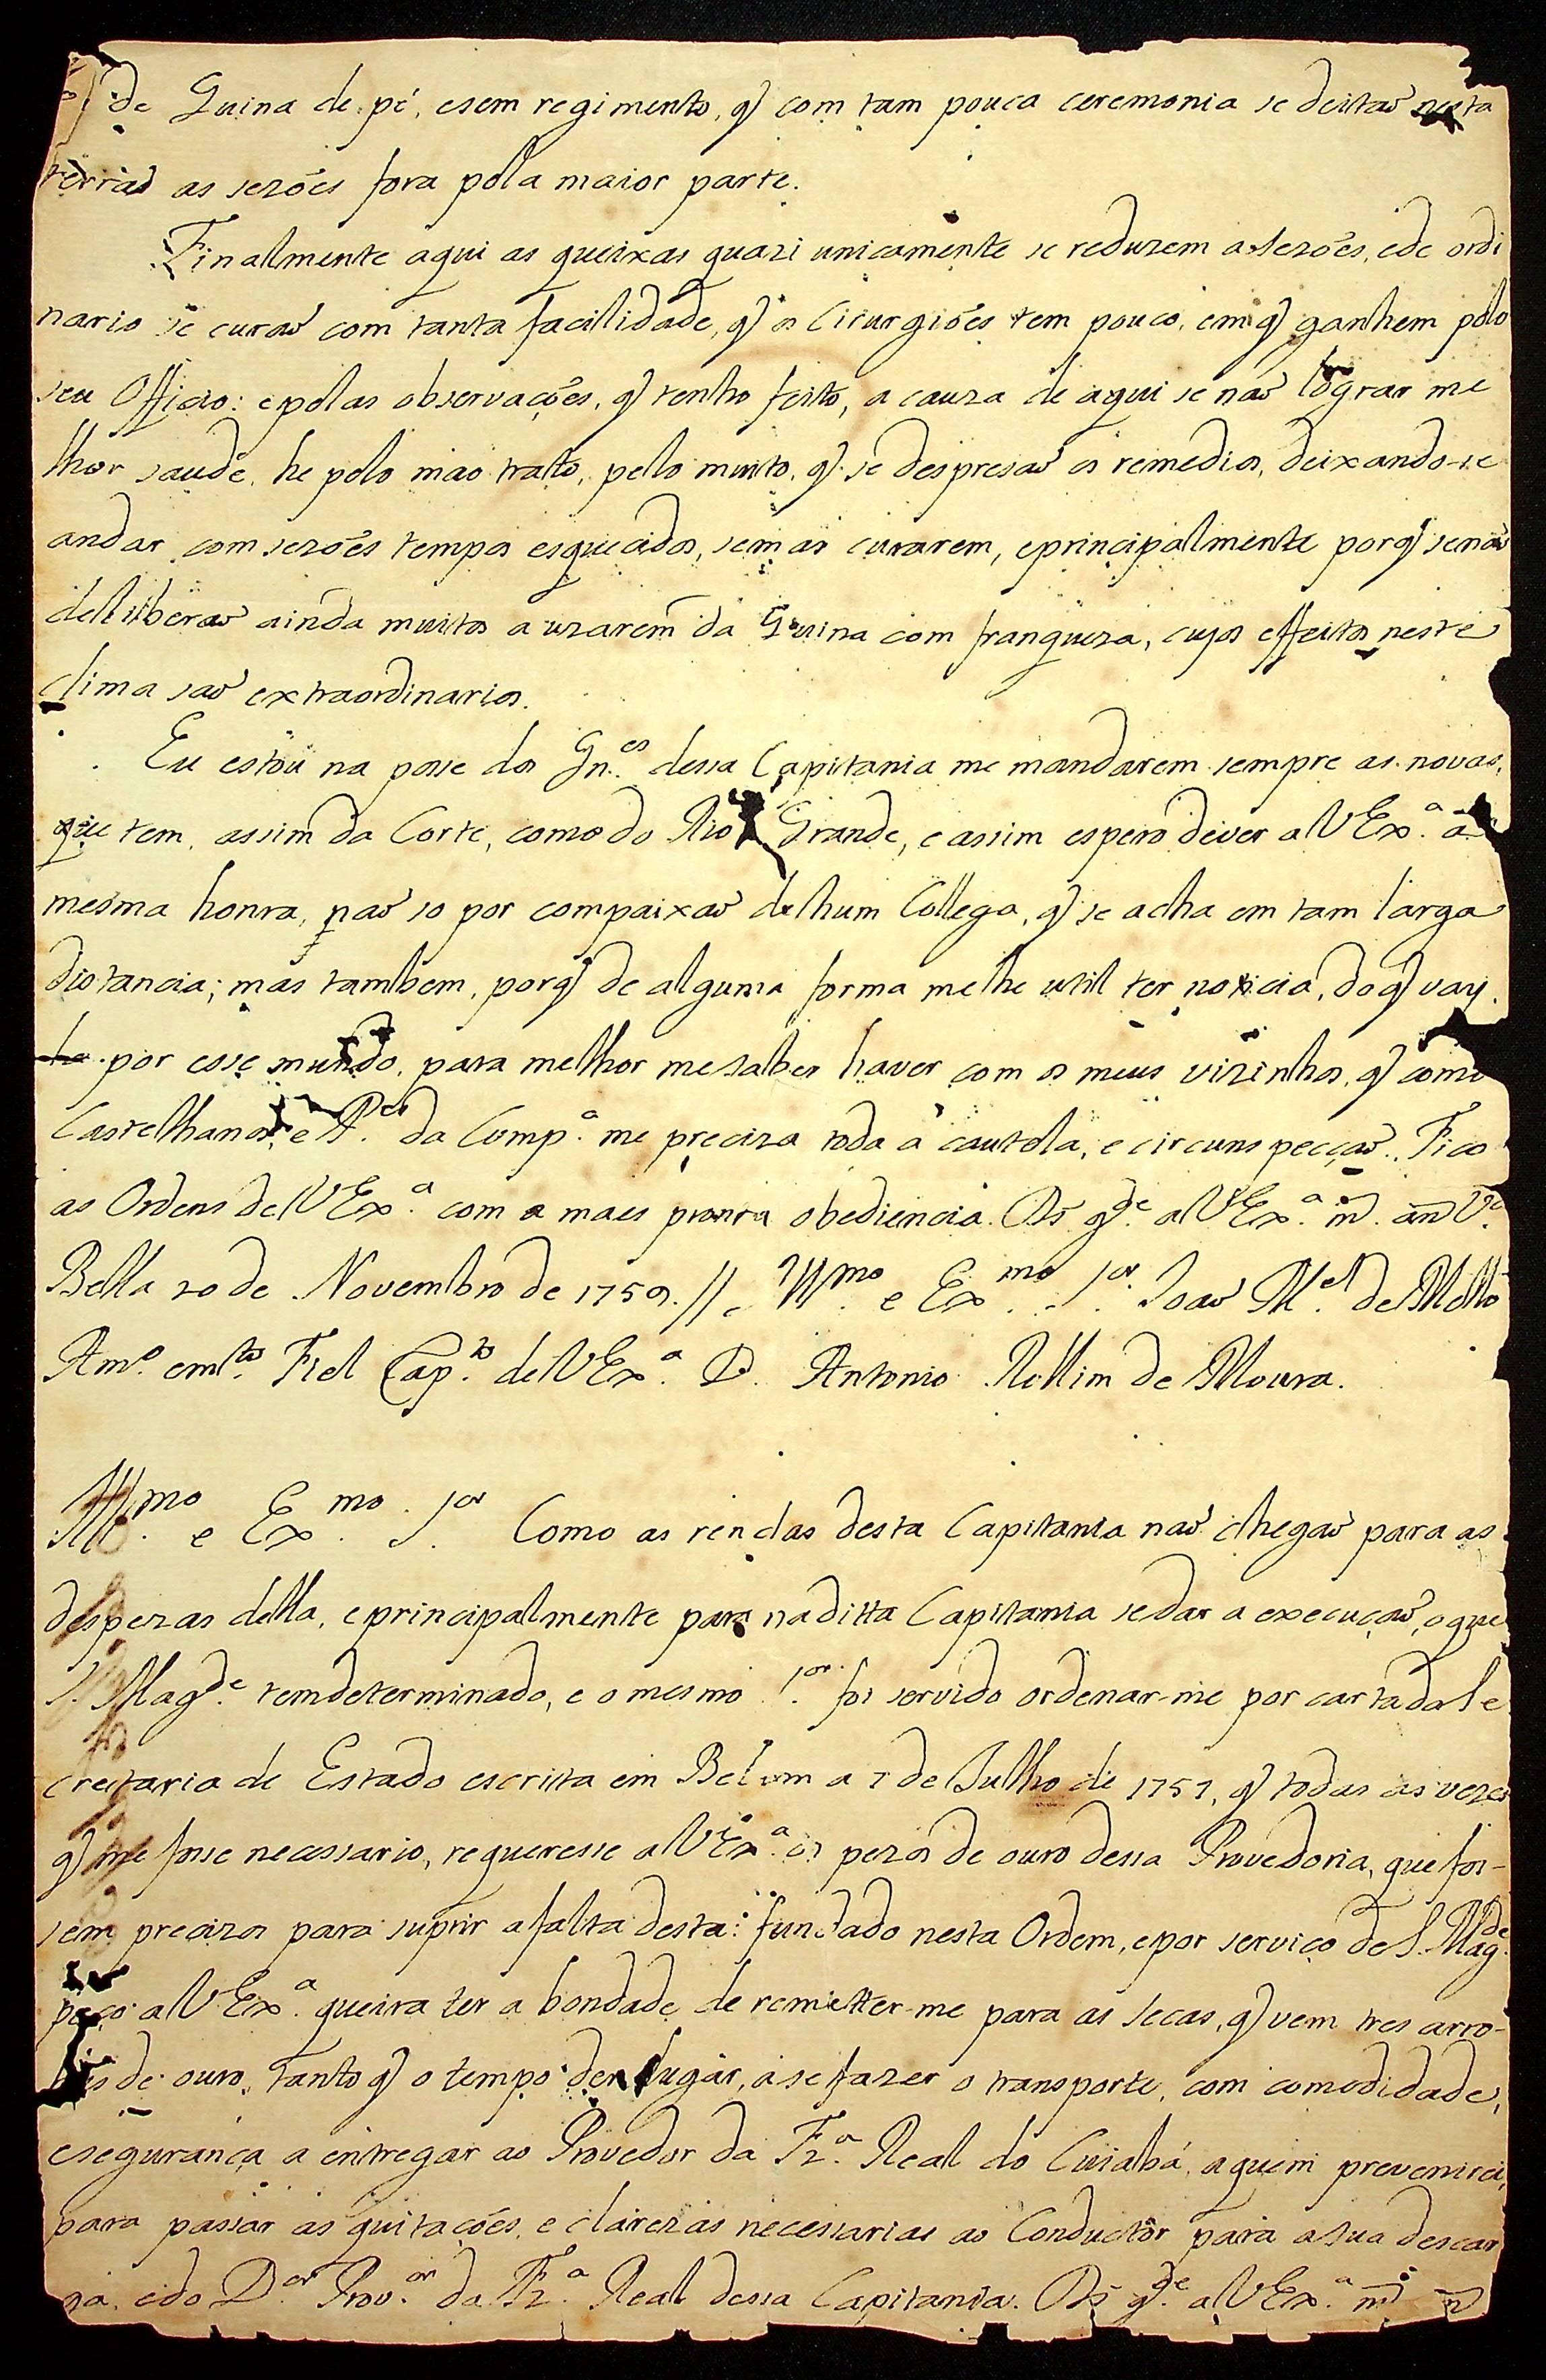 de Quina de pé, esem regimento, q) com tam pouca ceremonia se deitaõ nesta
terraõ as sezões fora pola maior parte.
Finallmente aqui as queixas quazi unicamente se reduzem a Sezões, ede ordi
nario se curaõ com tanta facillidade, q) os Cirurgiões tem pouco, em q) ganhem polo
seu Officio: epolas observações, q) tenho feito, a cauza de aqui se naõ lograr me
lhor saude, he polo mao trato, pello muito, q) se despresaõ os remedios, deixando-se
andar com sezões tempos esquecidos, sem as curarem, eprincipalmente porq) senaõ
delliberaõ ainda muitos a uzarem da Quina com franqueza, cujos effeitos neste
clima saõ extraordinarios.
Eu estou na posse dos Gn.es dessa Capitania me mandarem sempre as novas,
que tem, assim da Corte, como do Rio Grande, e assim espero dever a V Ex.a a
mesma honra, naõ so por compaixaõ de hum Collega, q) se acha em tam larga
distancia; mas tambem, porq) de alguma forma me he util ter noticia, do q) vay
por esse mundo, para melhor me saber haver com os meus vizinhos, q) como
Castelhanos, e P.es da Comp.a me preciza toda a cautela, e circunspecçaõ. Fico
as Ordens de V Ex.a com a maes pronta obediencia. D.s g.de a V Ex.a m. an V.a
Bella 20 de Novembro de 1759. // Ill.mo e Ex.mo S.or Joaõ M.el de Mello
Am.o em.to Fiel Cap.to de V Ex.a D. Antonio Rollim de Moura.
Ill.mo e Ex.mo S.or Como as rendas desta Capitania naõ chegaõ para as
despezas della, eprincipalmente para na ditta Capitania se dar a execuçaõ, o que
S. Mag.de tem determinado, e o mesmo S.or foi servido ordenar-me por carta da Se
cretaria de Estado escritta em Belem a 7 de Julho de 1757, q) todas as vezes
q) me fosse necessario, requeresse a V Ex.a os pezos de ouro dessa Provedoria, que fos-
sem precizos para suprir a falta desta: fundado nesta Ordem, epor serviço de S. Mag.de
peço a V Ex.a queira ter a bondade de remetter-me para as secas, q) vem tres arro-
bas de ouro, tanto q) o tempo der lugar, a se fazer o transporte, com comodidade,
esegurança a entregar ao Provedor da Fz.a Real do Cuiabá, aquem prevenirei,
para passar as quitações, e clarezas necessarias ao Conductor para a sua descar
ga, edo D.or Prov.or da Fz.a Real dessa Capitania. D.s g.de a V Ex.a m. an